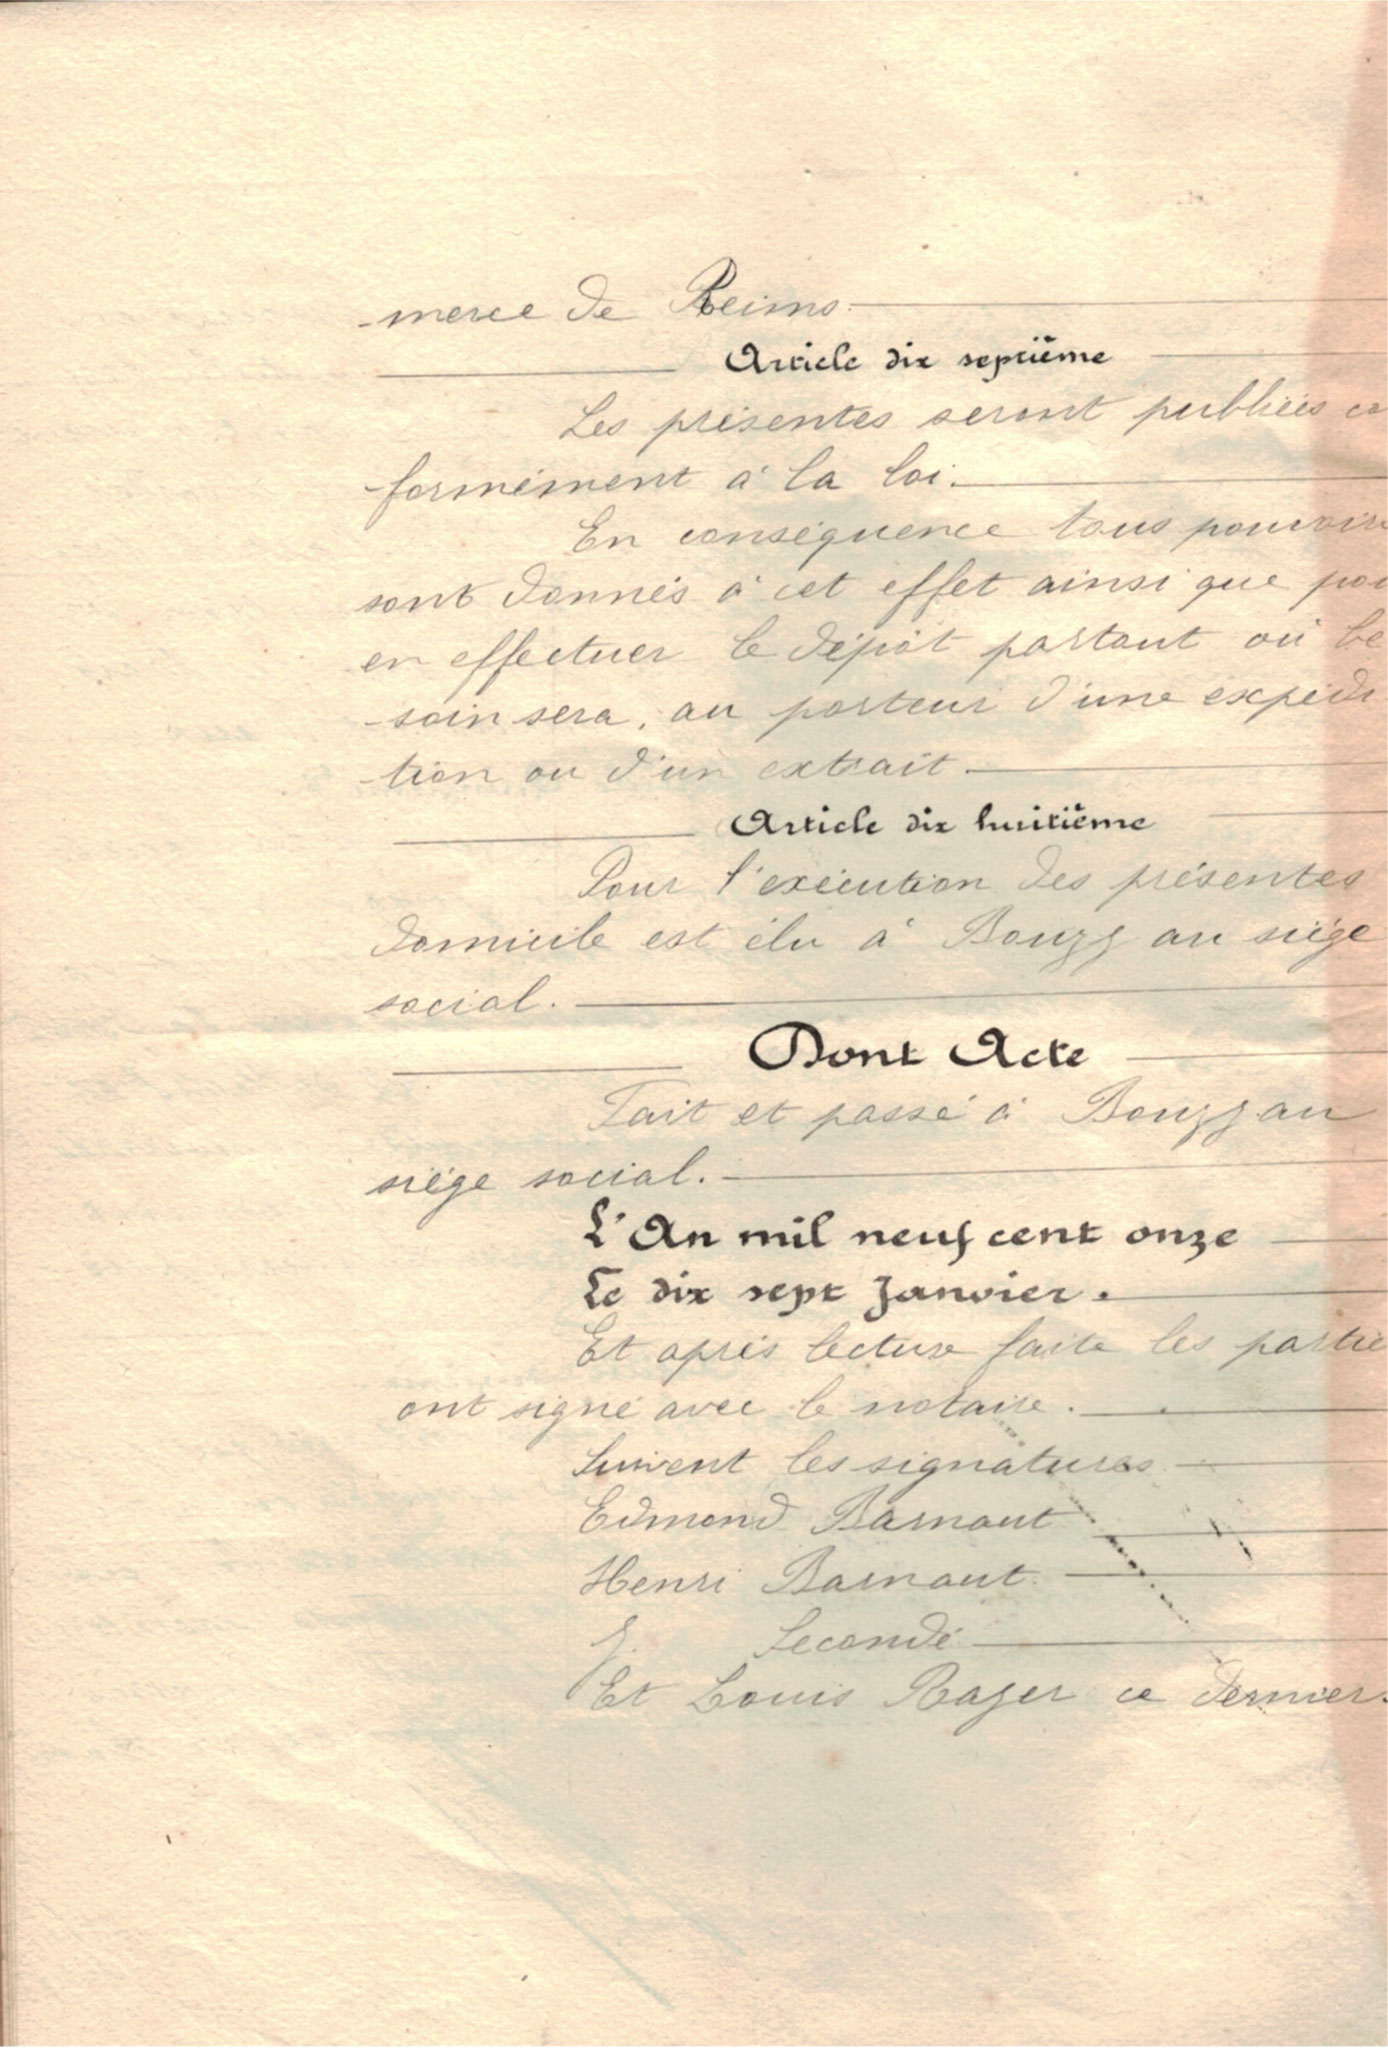 -merce de Reims.
Article dix septième
Les présentes seront publiées co
-formément à la loi.
En conséquence tous pouvoirs
sont donnés à cet effet ainsi que pou
en effectuer le dépôt partout où be
-soin sera, au porteur d'une expédi
-tion ou d'un extrait.
Article dix huitième
Pour l'exécution des présentes
domicile est élu à Bouzy au siège
social.
Dont Acte
Fait et passé à Bouzy au
siège social.
L'An mil neuf cent onze
Le dix sept Janvier.
Et après lecture faite les partie
ont signé avec le notaire.
Suivent les signatures
Edmond Barnaut
Henri Barnaut
Secondé
Et Louis Rager ce dernier